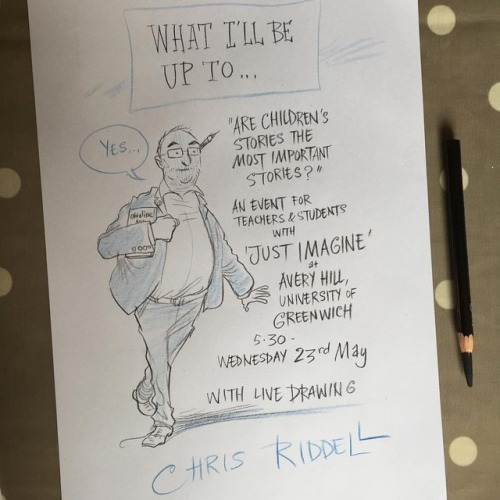 WHAT I'LL BE
UP TO...
YES...
"ARE CHILDREN'S
STORIES THE
MOST IMPORTANT
STORIES?"
AN EVENT FOR
TEACHERS & STUDENTS
WITH
'JUST IMAGINE'
at
AVERY HILL,
UNIVERSITY OF
GREENWICH
5.30 -
WEDNESDAY 23rd May
WITH LIVE DRAWING
CHRIS RIDDELL